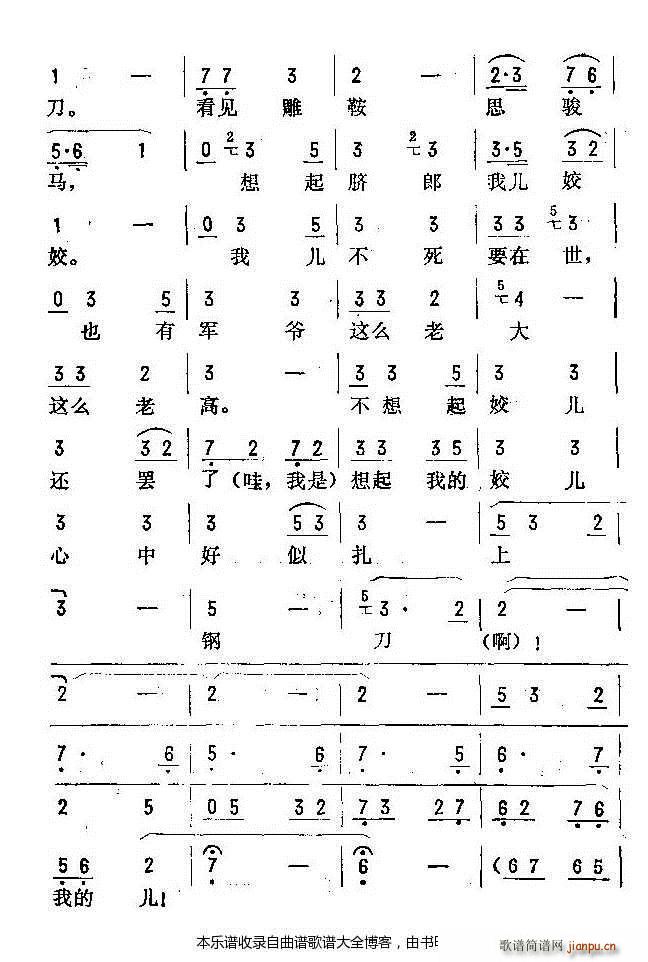 1 — | 7 7 3 | 2 — | 2·3 7 6
刀。 看见 雕 鞍 思 骏
5·6 1 | 0 2/7 3 5 | 3 2/7 3 | 3·5 3 2
马， 想 起 脐 郎 我儿 姣
1 — | 0 3 5 | 3 3 | 3 3 5/7 3
姣。 我 儿 不 死 要在 世，
0 3 5 | 3 3 | 3 3 2 | 5/7 4 —
也 有 军 爷 这么 老 大
3 3 2 | 3 — | 3 3 5 | 3 3
这么 老 高。 不 想 起 姣 儿
3 3 2 | 7 2 7 2 | 3 3 3 5 | 3 3
还 罢 了（哇，我是）想起 我的 姣 儿
3 3 | 3 5 3 | 3 — | 5 3 2
心 中 好 似 扎 上
3 — | 5 — | 5/7 3· 2 | 2 —
钢 刀 （啊）！
2 — | 2 — | 2 — | 5 3 2
7· 6 | 5· 6 | 7 5 | 6· 7
2 5 | 0 5 3 2 | 7 3 2 7 | 6 2 7 6
5 6 2 | 7 — | 6 — | (6 7 6 5
我的 儿！
本乐谱收录自曲谱歌谱大全博客，由书
歌谱简谱网
jianpu.cn